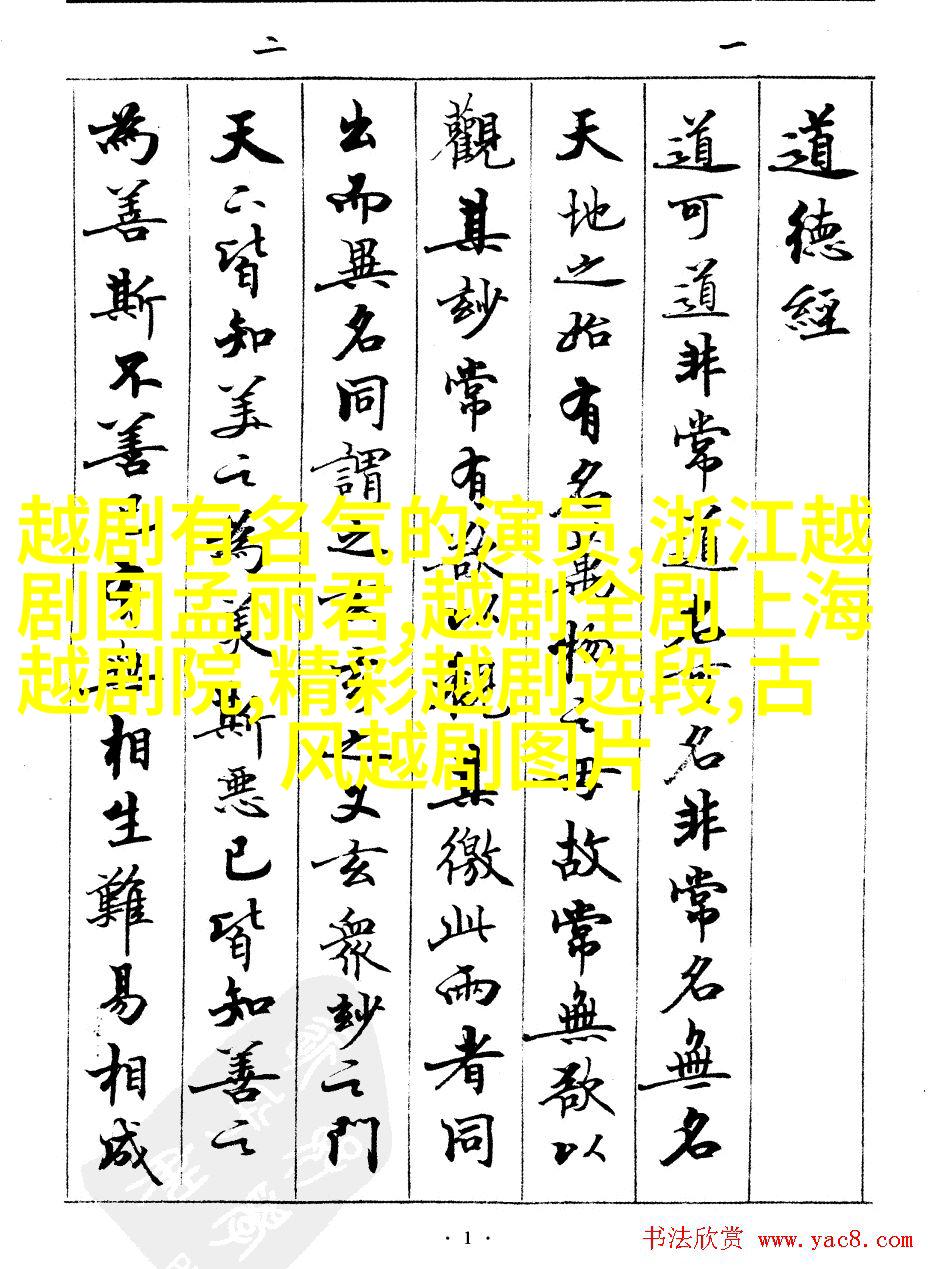 一
二
道德經
道可道非常道名可名非常名無名
天地之始有名萬物之母故常無欲以
觀其玅常有欲以觀其徼此兩者同
出而異名同謂之玄玄之又玄衆玅之門
天下皆知美之為美斯惡已皆知善之
為善斯不善已有無相生難易相成
越剧有名气的演员,浙江越
剧团孟丽君,越剧全剧上海
越剧院,精彩越剧选段,古
风越剧图片
· 1 ·
书法欣赏 www.yac8.com